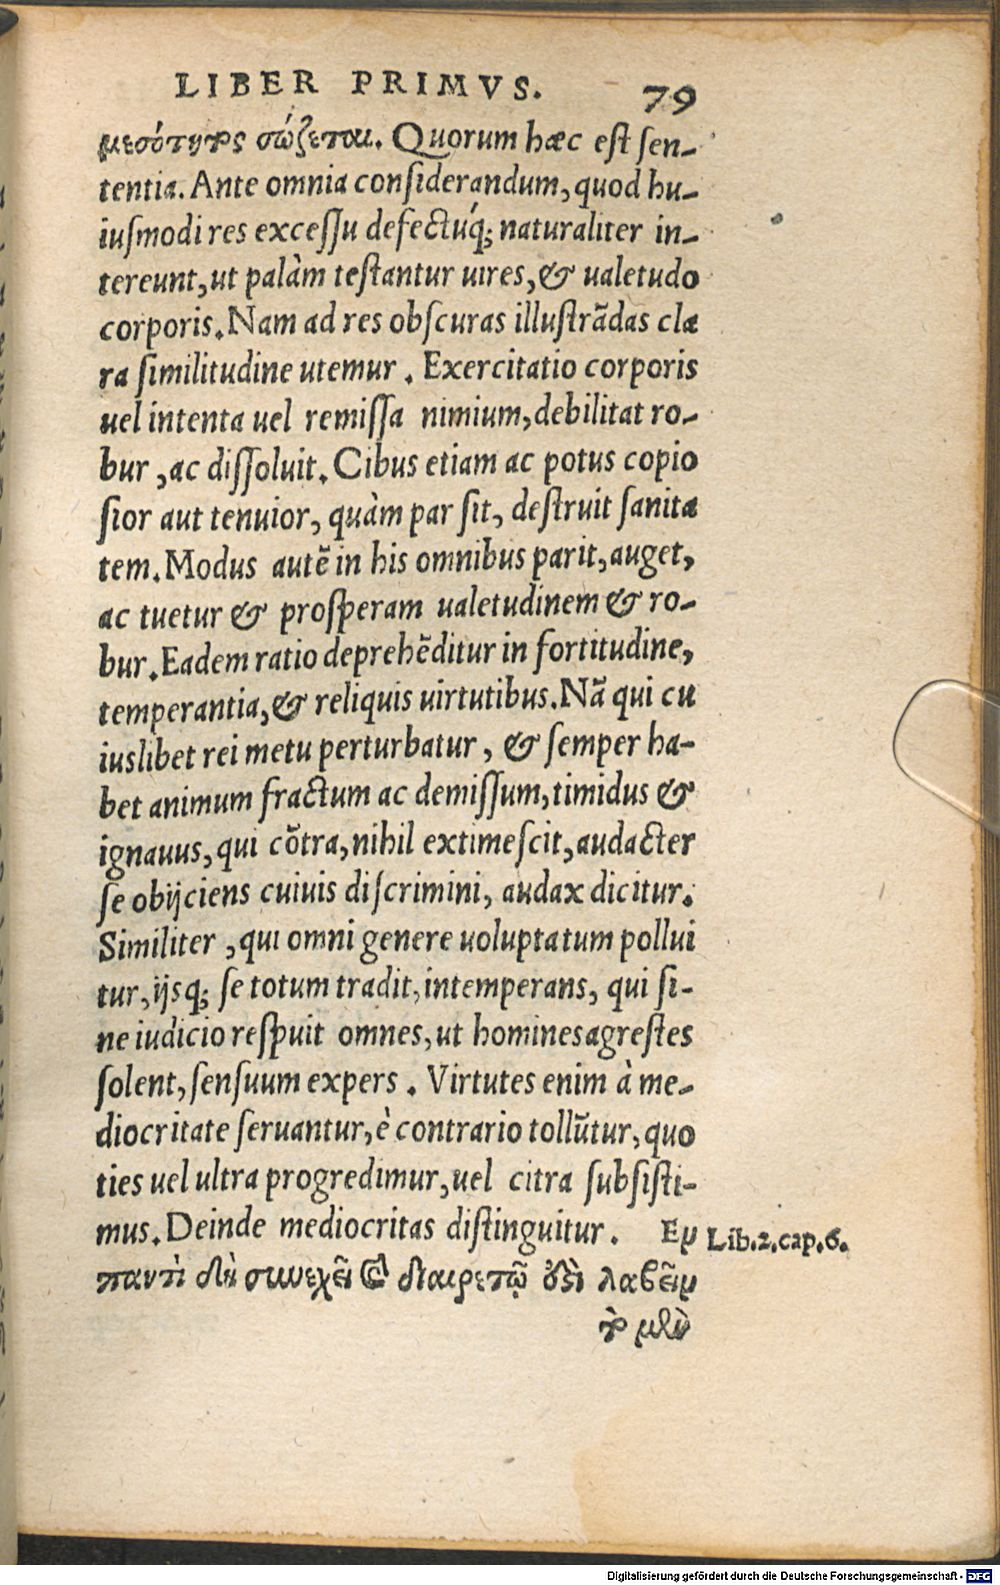 LIBER PRIMVS. 79
μεσότητος σώζεται. Quorum hæc est sen-
tentia. Ante omnia considerandum, quod hu-
iusmodi res excessu defectúq; naturaliter in-
tereunt, ut palàm testantur uires, & ualetudo
corporis. Nam ad res obscuras illustrãdas cla
ra similitudine utemur. Exercitatio corporis
uel intenta uel remissa nimium, debilitat ro-
bur, ac dissoluit. Cibus etiam ac potus copio
sior aut tenuior, quàm par sit, destruit sanita
tem. Modus autẽ in his omnibus parit, auget,
ac tuetur & prosperam ualetudinem & ro-
bur. Eadem ratio deprehẽditur in fortitudine,
temperantia, & reliquis uirtutibus. Nã qui cu
iuslibet rei metu perturbatur, & semper ha-
bet animum fractum ac demissum, timidus &
ignauus, qui cõtra, nihil extimescit, audacter
se obijciens cuiuis discrimini, audax dicitur.
Similiter, qui omni genere uoluptatum pollui
tur, ijsq; se totum tradit, intemperans, qui si-
ne iudicio respuit omnes, ut homines agrestes
solent, sensuum expers. Virtutes enim à me-
diocritate seruantur, è contrario tollũtur, quo
ties uel ultra progredimur, uel citra subsisti-
mus. Deinde mediocritas distinguitur. Εν
Lib.2.cap.6.
παντὶ δὴ συνεχεῖ καὶ διαιρετῷ ὅζι λαβεῖν
τὸ μὲν
Digitalisierung gefördert durch die Deutsche Forschungsgemeinschaft - DFG